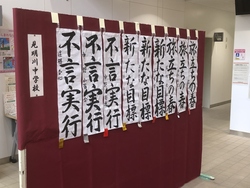 旅立ちの春
旅立ちの春
旅立ちの春
新たな目標
新たな目標
新たな目標
不言実行
不言実行
不言実行
見明川中学校